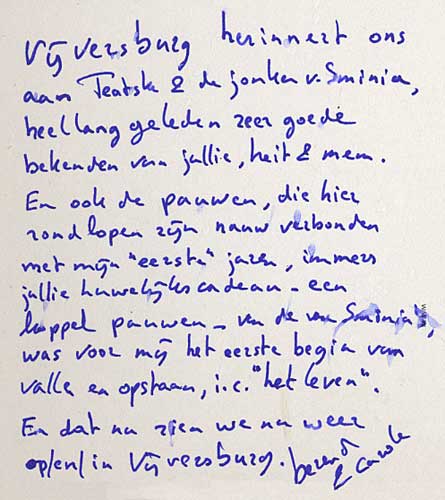 Vijversburg herinnert ons
aan Teatske & de jonker v. Sminia,
heel lang geleden zeer goede
bekenden van jullie, heit & mem.
En ook de pauwen, die hier
rondlopen zijn nauw verbonden
met mijn "eerste" jaren, immers
jullie huwelijkscadeau - een
koppel pauwen - van de van Sminia's,
was voor mij het eerste begin van
vallen en opstaan, i.c. "het leven".
En dat nu zien we nu weer
op/en/in Vijversburg.
berend
& carole